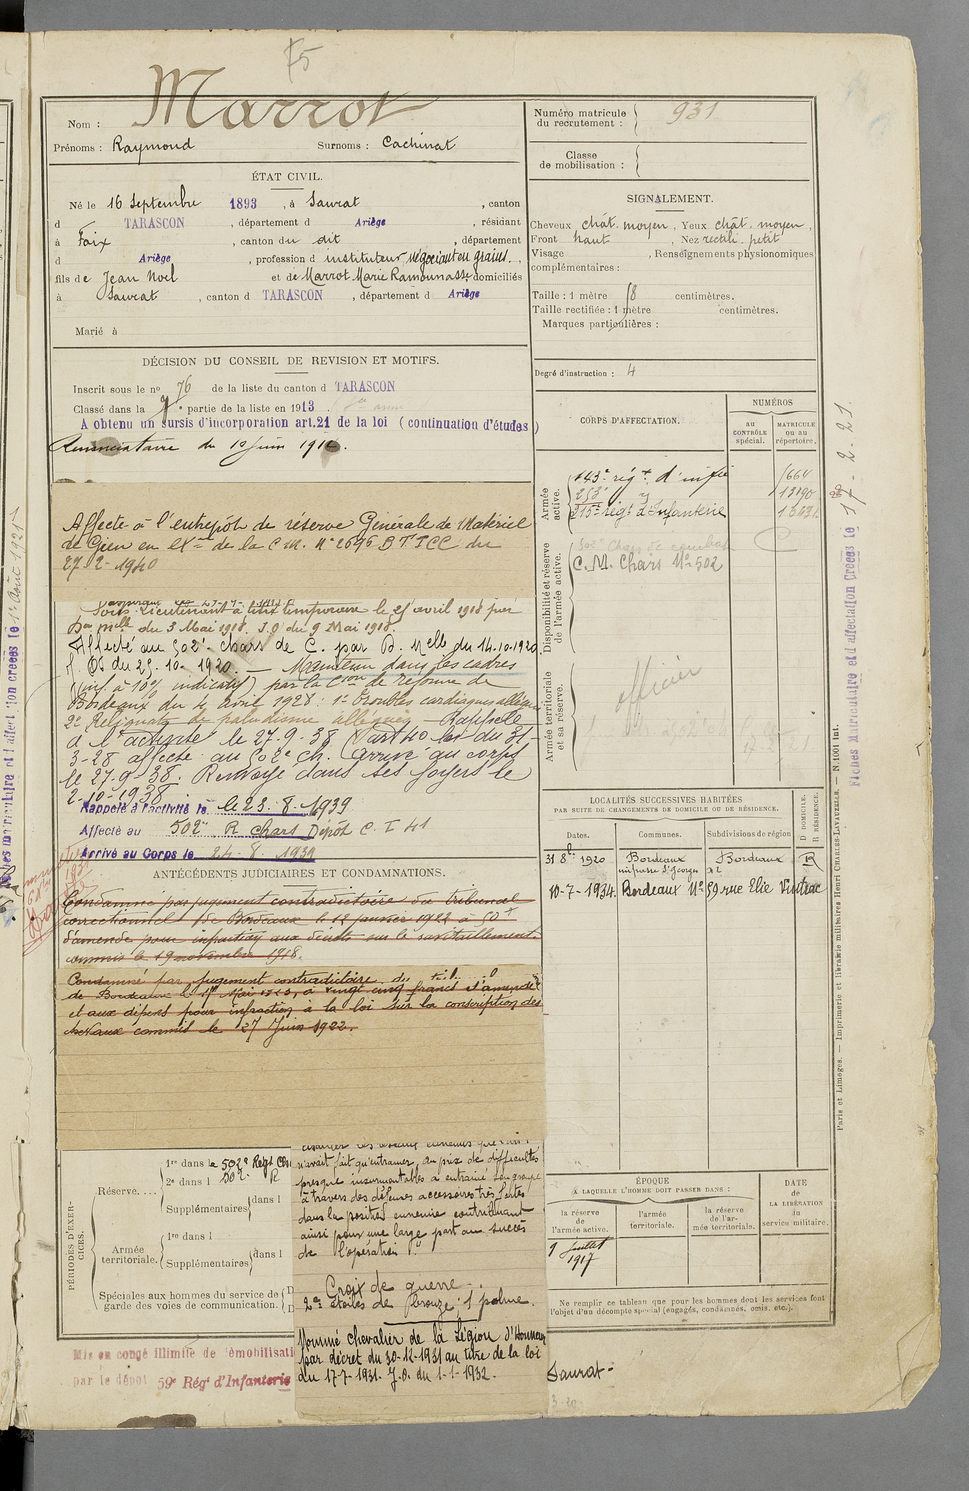 75
Nom : Marrot
Prénoms : Raymond Surnoms : Cachinat
ÉTAT CIVIL.
Né le 16 Septembre 1893, à Saurat, canton
d TARASCON, département d Ariège, résidant
à Foix, canton du dit, département
d Ariège, profession d instituteur négociant en grains.
fils de Jean Noel et de Marrot Marie domiciliés
à Saurat, canton d TARASCON, département d Ariège
Marié à
DÉCISION DU CONSEIL DE REVISION ET MOTIFS.
Inscrit sous le no 76 de la liste du canton d TARASCON
Classé dans la partie de la liste en 1913.
A obtenu un sursis d'incorporation art.21 de la loi (continuation d'études)
du 10 Juin 191
Affecté à l'entrepôt de réserve Générale de Matériel
de Gien en de la C.M. N° 2695 BTICC du
27-2-1940
Sous Lieutenant à titre temporaire le 25 avril 1918 par
Don mlle du 3 Mai 1918. J.O du 9 Mai 1918.
Affecté au 502e chars de C. par D. Melle du 14-10-1920
du 25-10-1920. — Maintenu dans les cadres
(inf. à 10% indicatif) par la Con de réforme de
Bordeaux du 4 avril 1928 : 1° Troubles cardiaques allégués
2° Reliquats de paludisme allégués — Rappelé
à l'activité le 27-9-38 (art 40 loi du 31-
3-28 affecté au 502e ch. Arrivé au corps
le 27-9-38. Renvoyé dans ses foyers le
2-10-1938
Rappelé à l'activité le 23-8-1939
Affecté au 502e R chars Dépôt C. I 41
Arrivé au Corps le 24-8-1939
ANTÉCÉDENTS JUDICIAIRES ET CONDAMNATIONS.
Condamné par jugement contradictoire du tribunal
correctionnel de Bordeaux le 12 janvier 1922 à 50 f
d'amende pour infraction aux décrets sur le ravitaillement
commis le 19 novembre 1918.
Condamné par jugement contradictoire du
de Bordeaux le Mai à vingt cinq francs d'amende
et aux dépens pour infraction à la loi sur la conscription des
chevaux commis le 27 Juin 1922.
PÉRIODES D'EXERCICES.
Réserve....
1re dans le 502e Regt Ch
2e dans l 502e R
Supplémentaires dans l
Armée territoriale.
1re dans l
Supplémentaires dans l
Spéciales aux hommes du service de
garde des voies de communication.
n'avait fait qu'entraver, au prix de difficultés
presque insurmontables a entraîné son groupe
à travers des défenses accessoires très fortes
dans la position ennemie contribuant
ainsi pour une large part au succès
de l'opération".
Croix de guerre
2e étoiles de bronze : 1 palme.
Nommé chevalier de la Légion d'Honneur
par décret du 30-12-1931 au titre de la loi
du 17-7-1931. J.O. du 1-1-1932.
Mis en congé illimité de démobilisati
par le dépôt 59e Régt d'Infanterie
Numéro matricule
du recrutement : 931
Classe
de mobilisation :
SIGNALEMENT.
Cheveux chât. moyen, Yeux chât. moyen,
Front haut, Nez rectili. petit
Visage , Renseignements physionomiques
complémentaires :
Taille : 1 mètre 58 centimètres.
Taille rectifiée : 1 mètre centimètres.
Marques particulières :
Degré d'instruction : 4
CORPS D'AFFECTATION.
NUMÉROS
AU CONTRÔLE spécial.
MATRICULE ou au répertoire.
Armée active.
143e régt d'inftie 1664
253e 13190
215e régt d'Infanterie
Disponibilité et réserve
de l'armée active.
502e Chars de combat
C. M. Chars No 502
Armée territoriale
et sa réserve.
officier
LOCALITÉS SUCCESSIVES HABITÉES
PAR SUITE DE CHANGEMENTS DE DOMICILE OU DE RÉSIDENCE.
Dates. Communes. Subdivisions de région D DOMICILE. R RÉSIDENCE.
31 8b 1920 Bordeaux Bordeaux R
impasse St Georges
10-7-1934 Bordeaux No 59 rue Elie Vintrac
ÉPOQUE
À LAQUELLE L'HOMME DOIT PASSER DANS :
DATE
DE LA LIBÉRATION
du
service militaire.
la réserve
de
l'armée active.
l'armée
territoriale.
la réserve
de l'ar-
mée territoriale.
1 Juillet
1917
Ne remplir ce tableau que pour les hommes dont les services font
l'objet d'un décompte spécial (engagés, condamnés, omis, etc.).
Saurat
Paris et Limoges. — Imprimerie et librairie militaires Henri CHARLES-LAVAUZELLE. — N. 1001 Int.
Fiches Matriculaire et d'affectation Créées le 17-2-21